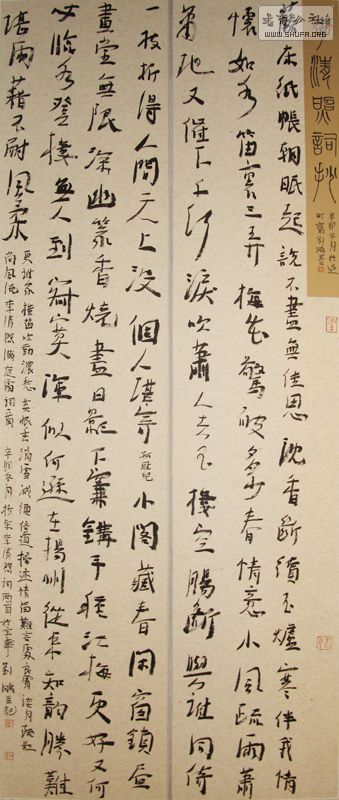 書法公社
WWW.SHUFA.ORG
清照詞抄
藤床紙帳朝眠起說不盡無佳思沈香斷續玉爐寒伴我情
懷如水笛裏三弄梅花驚破多少春情意小風疏雨蕭
蕭地又催下千行淚吹簫人去玉樓空腸斷與誰同倚
一枝折得人間天上沒個人堪寄 孤雁兒 小閣藏春閑窗鎖晝
畫堂無限深幽篆香燒盡日影下簾鉤手種江梅更好又何
必臨水登樓無人到寂寞渾似何遜在揚州從來知韻勝難
堪雨藉不耐風柔
更誰家橫笛吹動濃愁莫恨香消雪減須信道掃跡情留難言處良宵淡月疏影
尚風流李清照滿庭霜詞 辛卯冬月抄宋李清照詞兩首於京華劉鴻並記